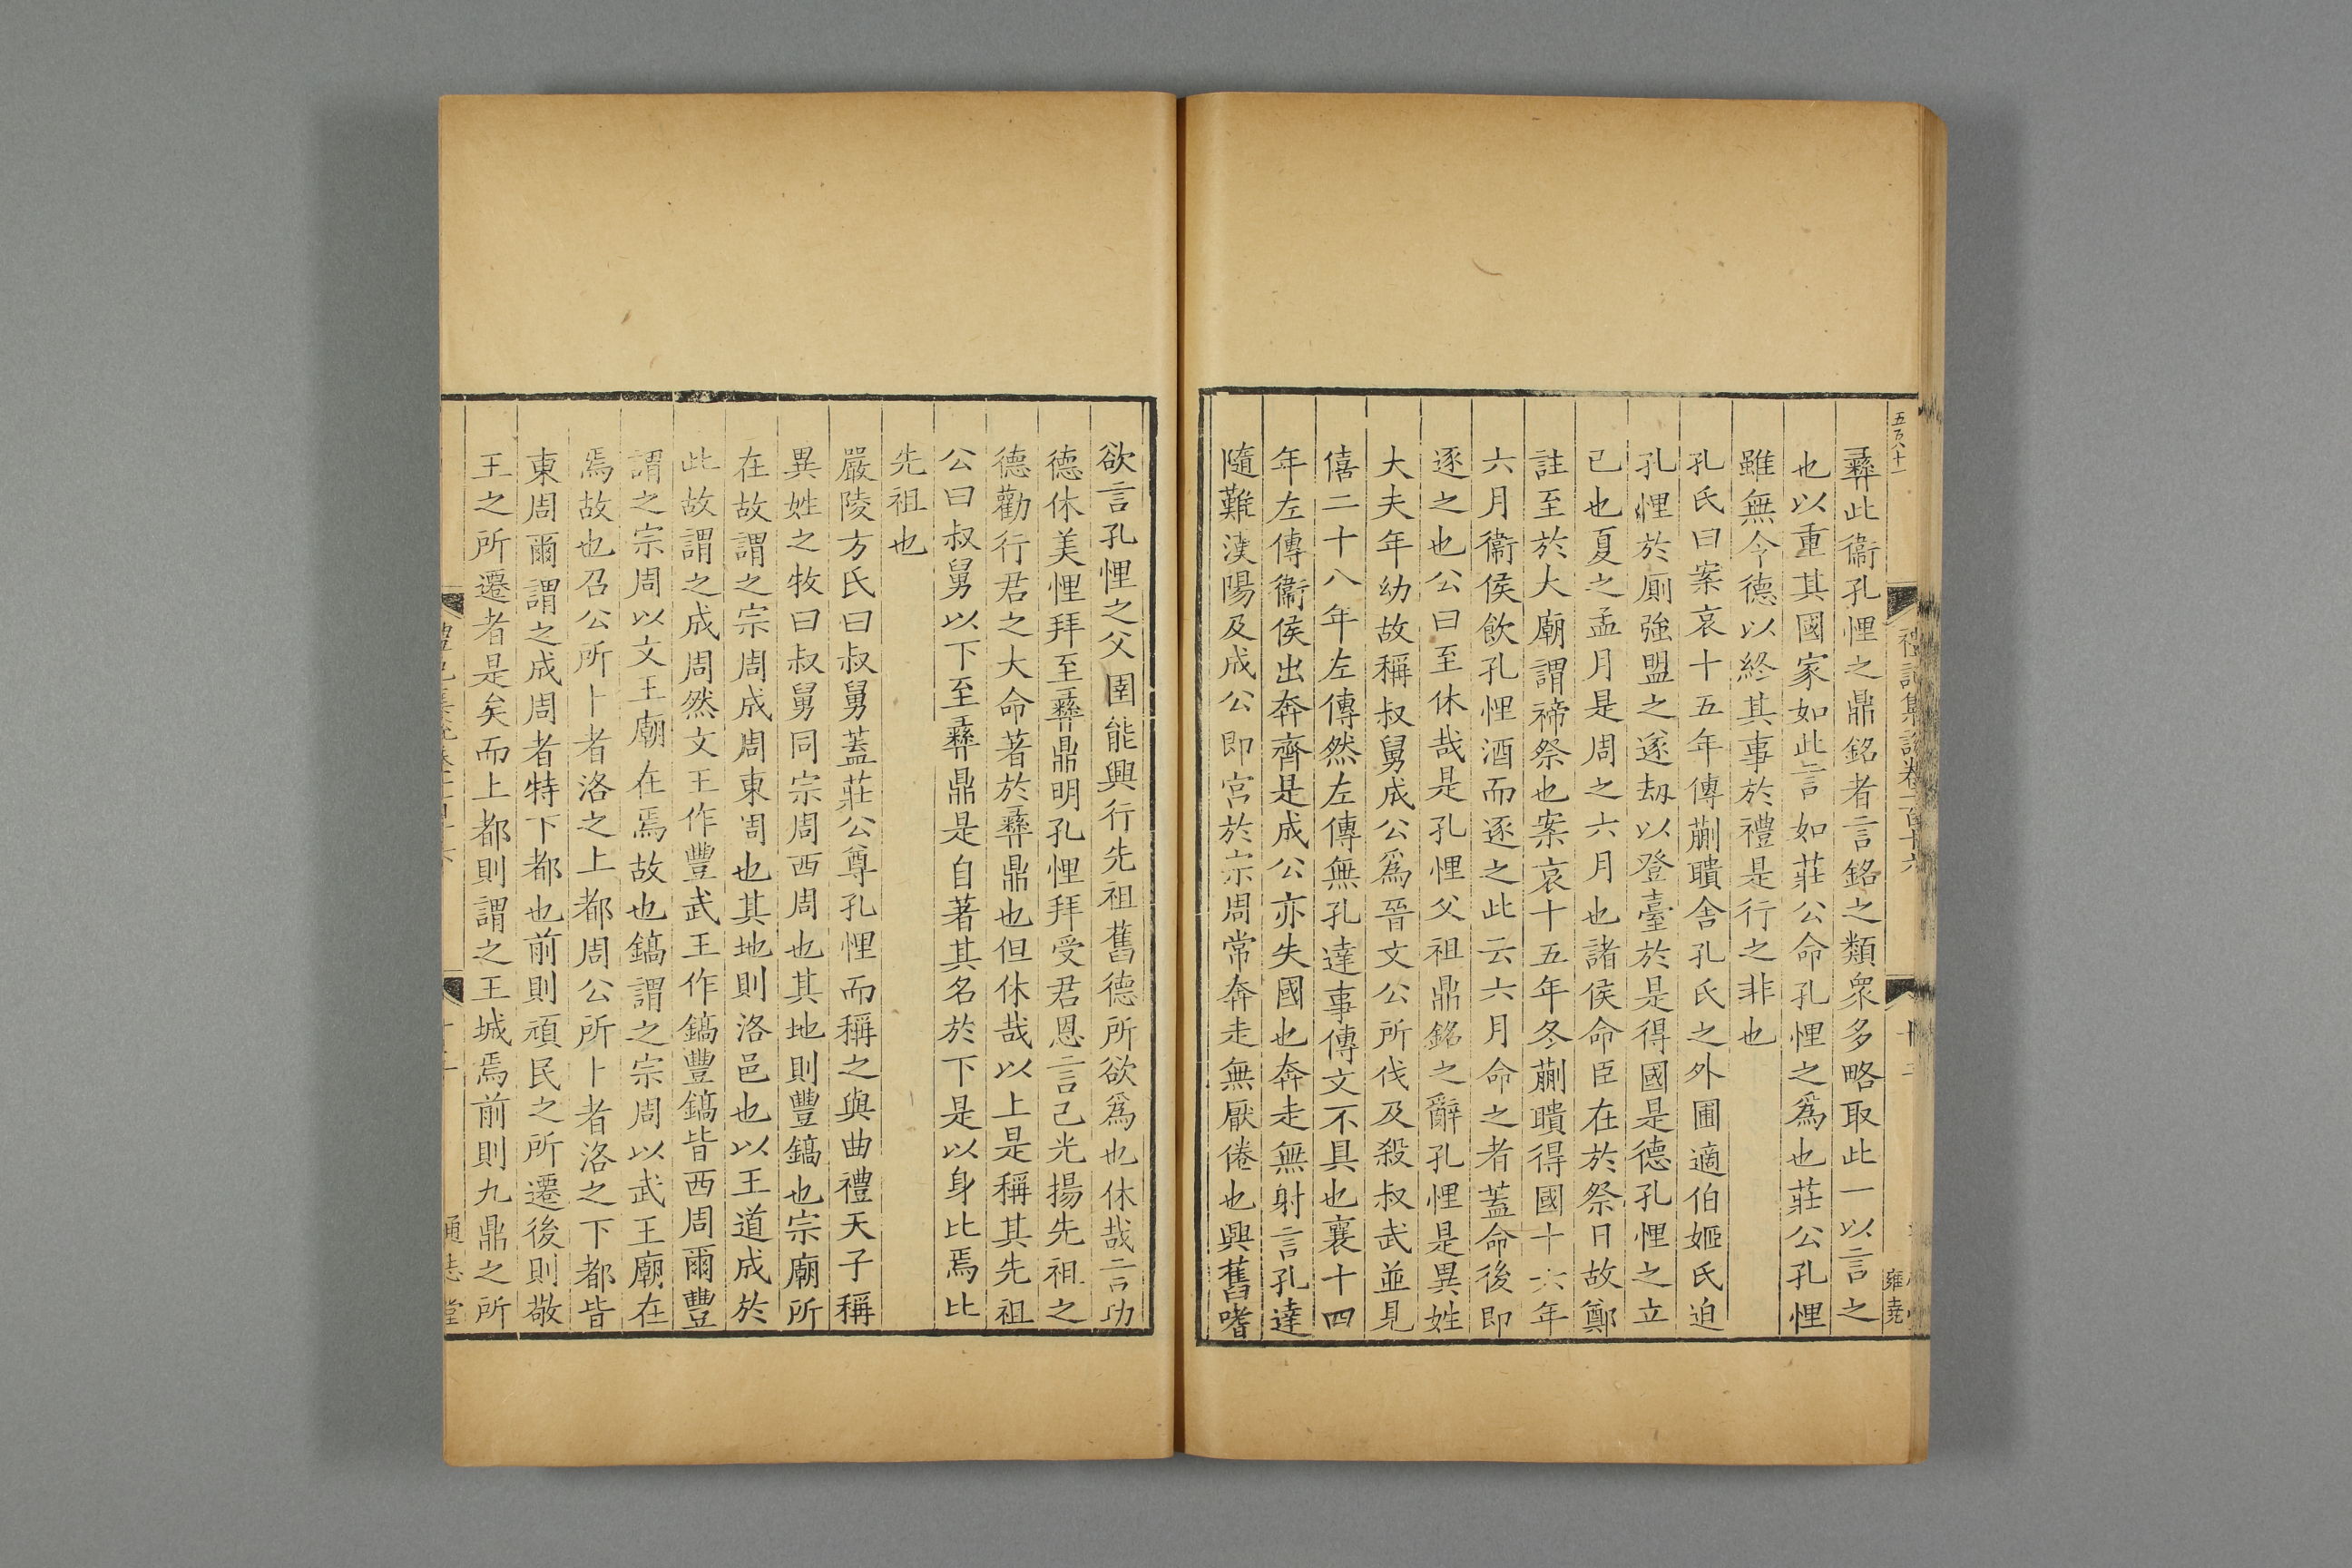 五百八十一
禮記集說卷一百十六
雍堯
彞此衞孔悝之鼎銘者言銘之類衆多略取此一以言之
也以重其國家如此言如莊公命孔悝之爲也莊公孔悝
雖無令德以終其事於禮是行之非也
孔氏曰案哀十五年傳蒯聵舍孔氏之外圃適伯姬氏迫
孔悝於厠強盟之遂刼以登臺於是得國是德孔悝之立
己也夏之孟月是周之六月也諸侯命臣在於祭日故鄭
註至於大廟謂禘祭也案哀十五年冬蒯聵得國十六年
六月衞侯飲孔悝酒而逐之此云六月命之者蓋命後即
逐之也公曰至休哉是孔悝父祖鼎銘之辭孔悝是異姓
大夫年幼故稱叔舅成公爲晉文公所伐及殺叔武並見
僖二十八年左傳然左傳無孔達事傳文不具也襄十四
年左傳衞侯出奔齊是成公亦失國也奔走無射言孔達
隨難漢陽及成公即宮於宗周常奔走無厭倦也興舊嗜
欲言孔悝之父圉能興行先祖舊德所欲爲也休哉言功
德休美悝拜至彞鼎明孔悝拜受君恩言己光揚先祖之
德勸行君之大命著於彞鼎也但休哉以上是稱其先祖
公曰叔舅以下至彞鼎是自著其名於下是以身比焉比
先祖也
嚴陵方氏曰叔舅蓋莊公尊孔悝而稱之與曲禮天子稱
異姓之牧曰叔舅同宗周西周也其地則豐鎬也宗廟所
在故謂之宗周成周東周也其地則洛邑也以王道成於
此故謂之成周然文王作豐武王作鎬豐鎬皆西周爾豐
謂之宗周以文王廟在焉故也鎬謂之宗周以武王廟在
焉故也召公所卜者洛之上都周公所卜者洛之下都皆
東周爾謂之成周者特下都也前則頑民之所遷後則敬
王之所遷者是矣而上都則謂之王城焉前則九鼎之所
通志堂